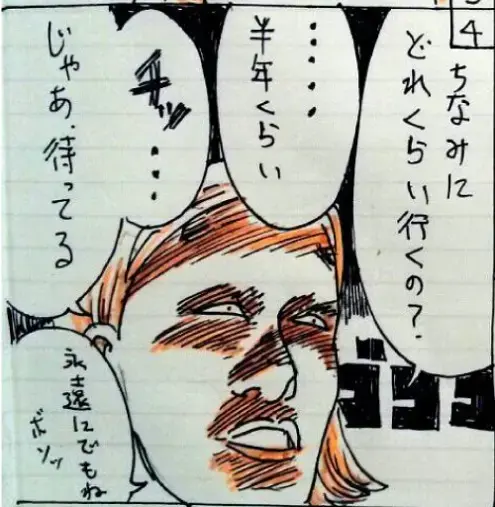 34
ちなみに
どれくらい行くの?
・・・・
半年くらい
チッ・・・
じゃあ、待ってる
永遠にでもね
ボソッ
ゴゴゴ